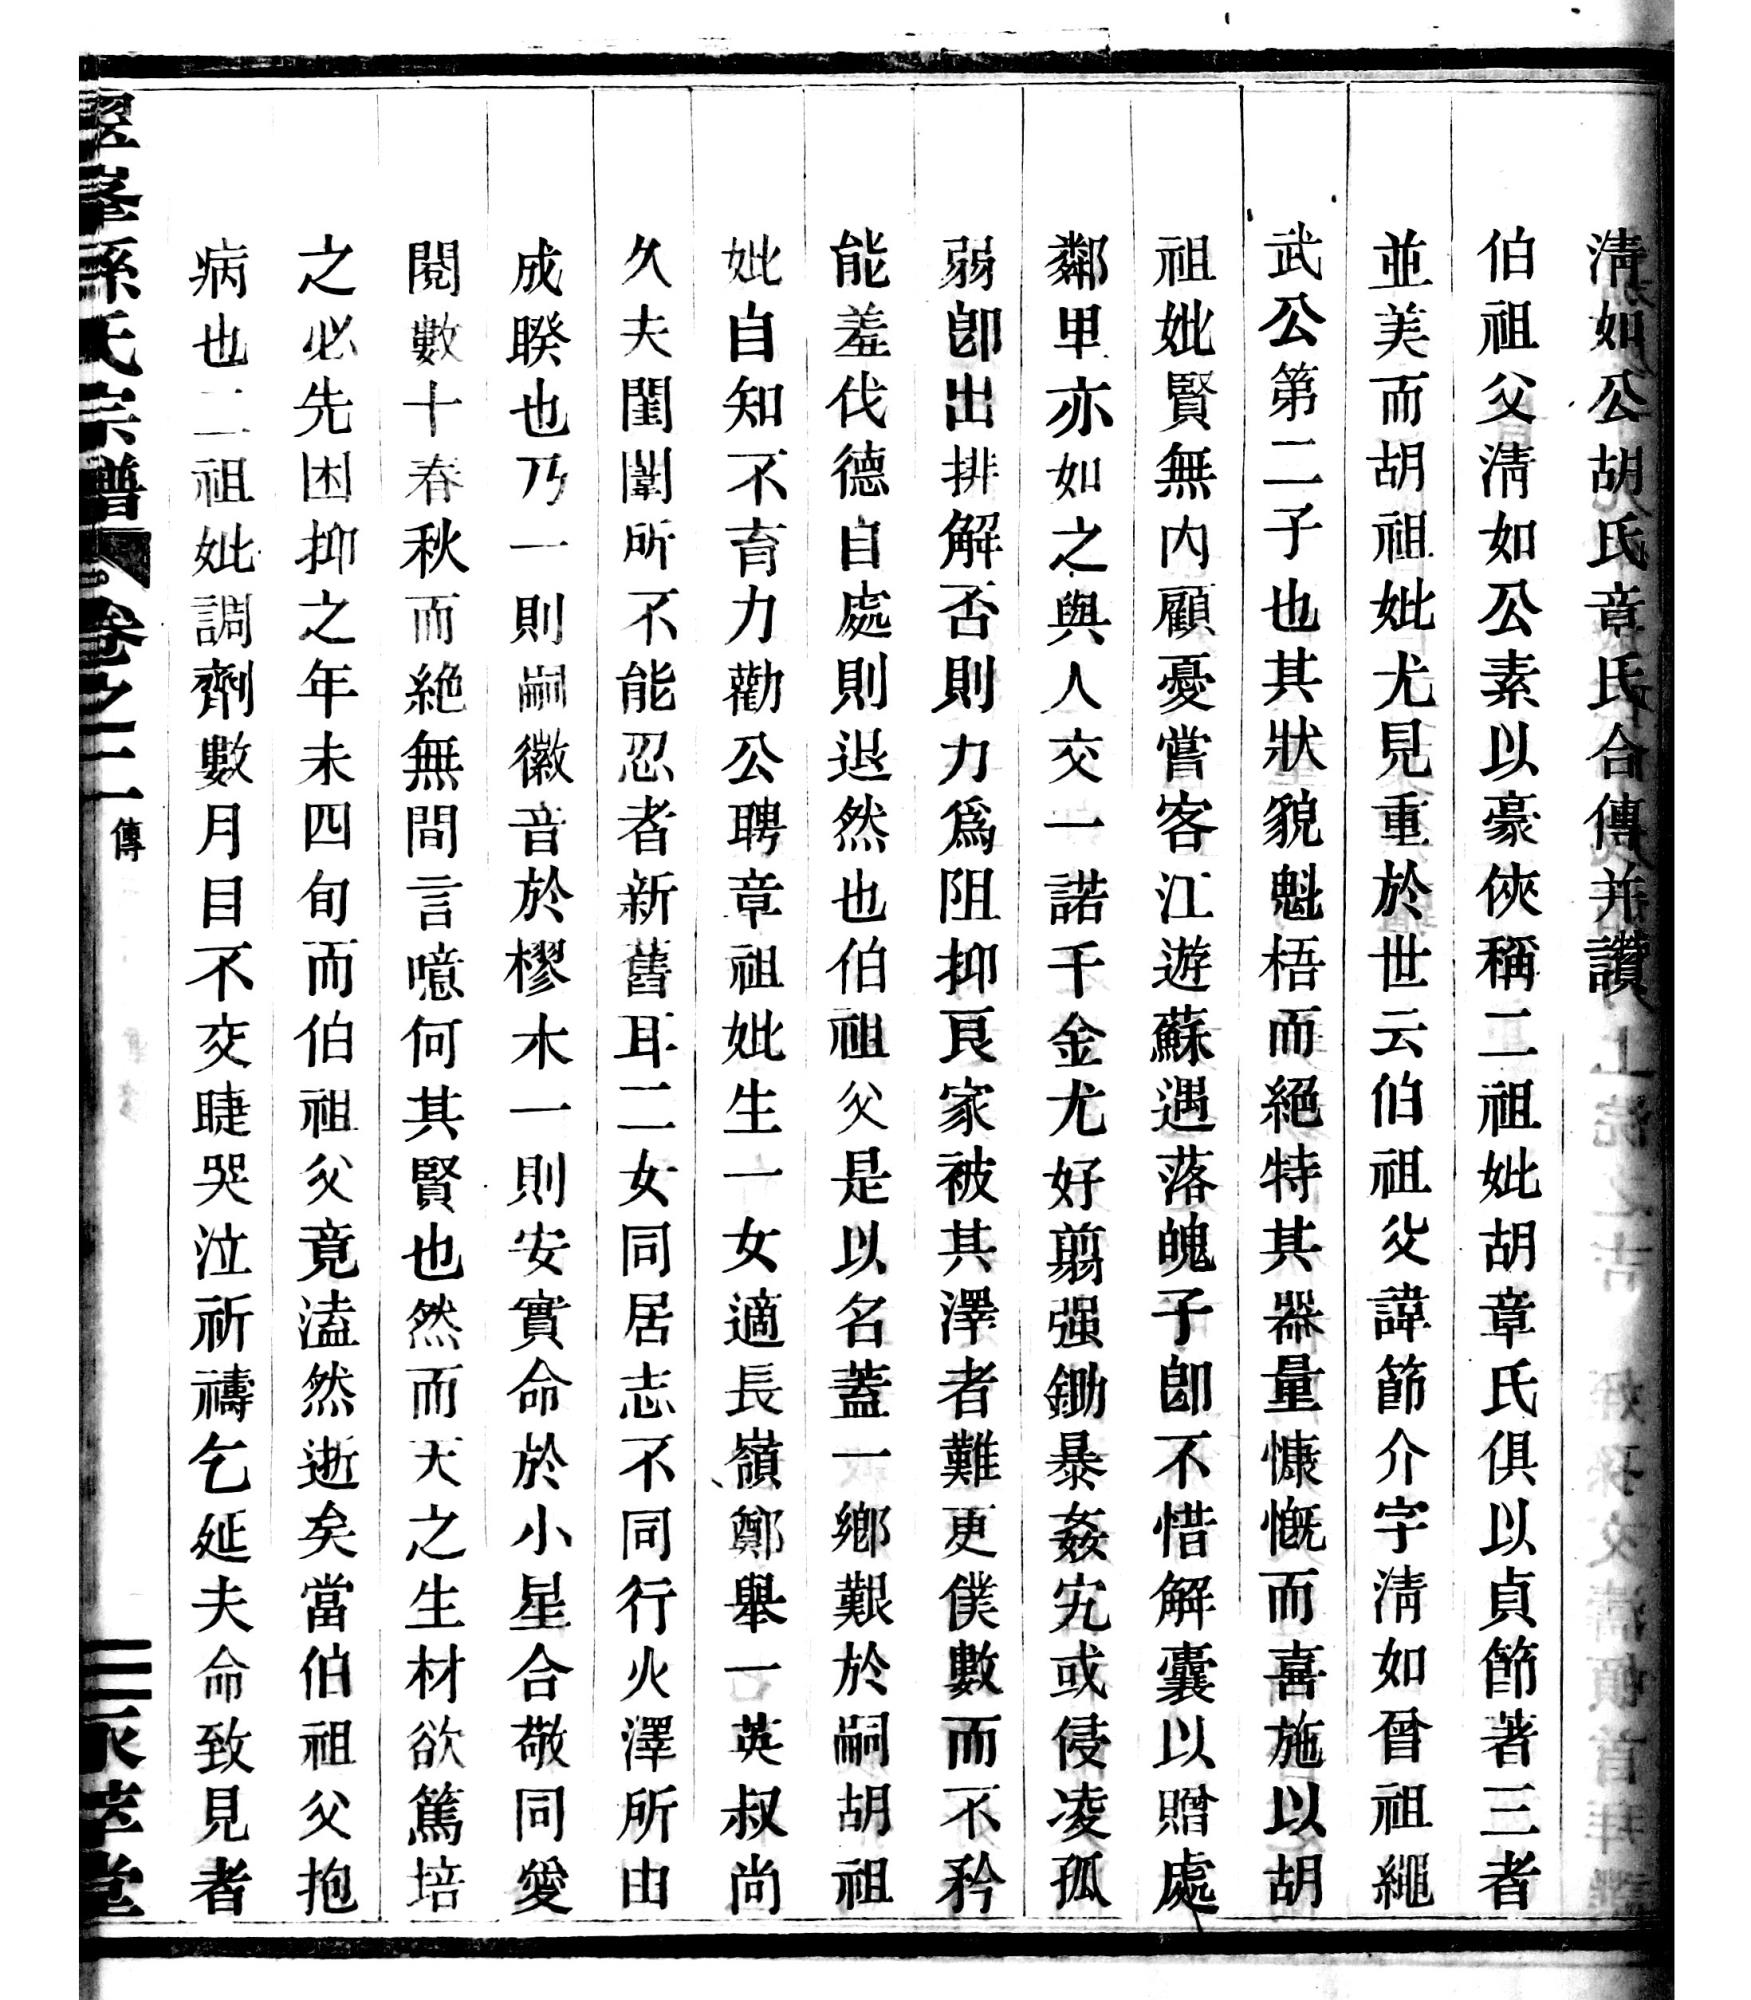 淸如公胡氏章氏合傳并讚
伯祖父淸如公素以豪俠稱二祖妣胡章氏俱以貞節著三者
並美而胡祖妣尤見重於世云伯祖父諱節介字淸如曾祖繩
武公第二子也其狀貌魁梧而絕特其器量慷慨而喜施以胡
祖妣賢無內顧憂嘗客江遊蘇遇落魄子卽不惜解囊以贈處
鄰里亦如之與人交一諾千金尤好剪强鋤暴姦宄或侵凌孤
弱卽出排解否則力爲阻抑良家被其澤者難更僕數而不矜
能羞伐德自處則退然也伯祖父是以名蓋一鄉艱於嗣胡祖
妣自知不育力勸公聘章祖妣生一女適長嶺鄭舉一英叔尚
久夫閨闈所不能忍者新舊耳二女同居志不同行火澤所由
成睽也乃一則嗣徽音於樛木一則安實命於小星合敬同愛
閱數十春秋而絕無間言噫何其賢也然而天之生材欲篤培
之必先困抑之年未四旬而伯祖父竟溘然逝矣當伯祖父抱
病也二祖妣調劑數月目不交睫哭泣祈禱乞延夫命致見者
孫氏宗譜 卷之二 傳 三 承莘堂